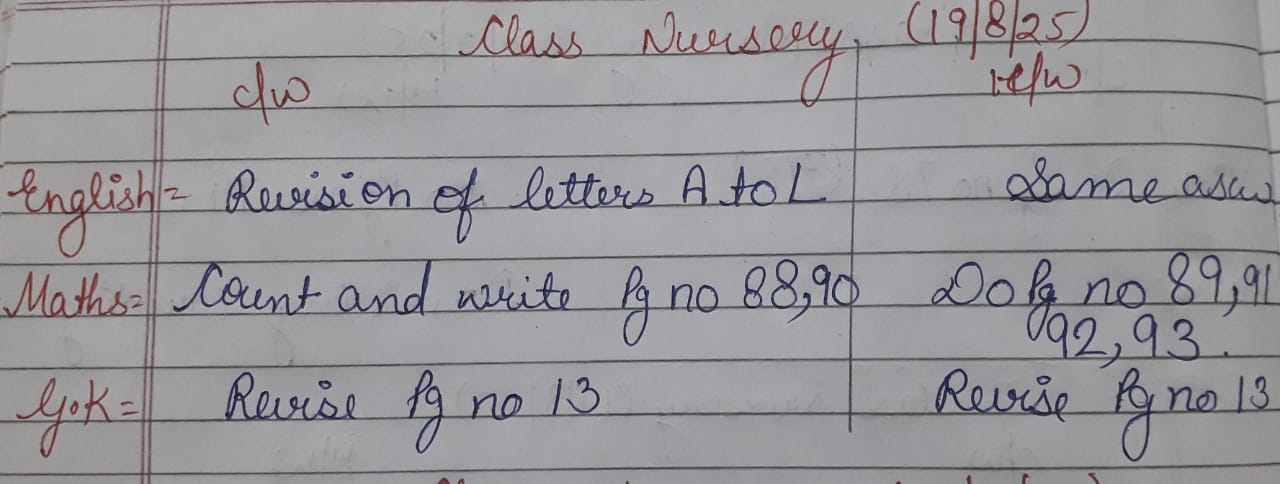 Class Nursery (19/8/25)
c/w H/w
English = Revision of letters A to L Same as cw
Maths = Count and write Pg no 88,90 Do Pg no 89,91
92,93.
G.K = Revise Pg no 13 Revise Pg no 13